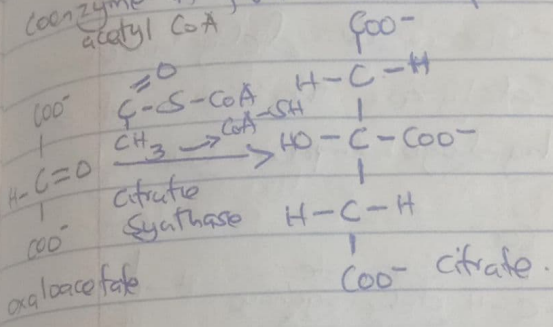 coenzyme
acetyl CoA
COO⁻
H-C=O
COO⁻
oxaloacetate
O
C-S-CoA
CH3 → CoA-SH
citrate
synthase
COO⁻
H-C-H
HO-C-COO⁻
H-C-H
COO⁻ citrate.